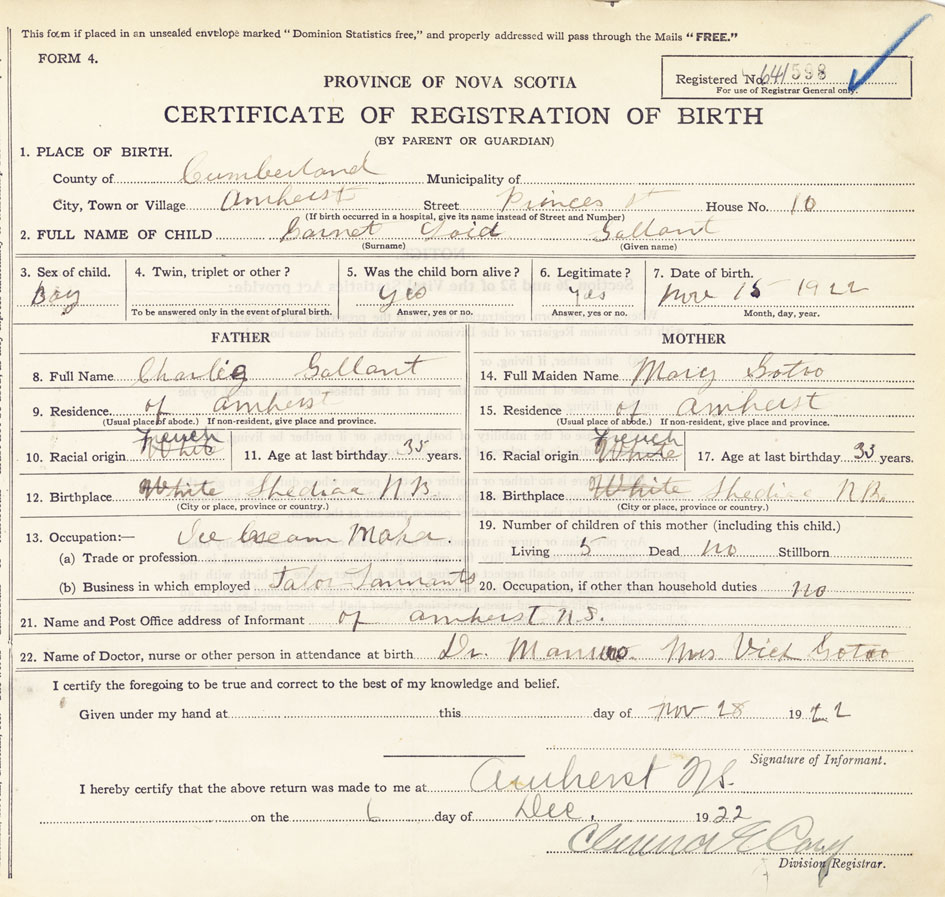 This form if placed in an unsealed envelope marked "Dominion Statistics free," and properly addressed will pass through the Mails "FREE."
FORM 4.
PROVINCE OF NOVA SCOTIA
Registered No. 641598
For use of Registrar General only.
CERTIFICATE OF REGISTRATION OF BIRTH
(BY PARENT OR GUARDIAN)
1. PLACE OF BIRTH.
County of Cumberland Municipality of
City, Town or Village Amherst Street Princes St House No. 10
(If birth occurred in a hospital, give its name instead of Street and Number)
2. FULL NAME OF CHILD Garnet Loid Gallant
(Surname) (Given name)
3. Sex of child. 4. Twin, triplet or other? 5. Was the child born alive? 6. Legitimate? 7. Date of birth.
Boy yes yes Nov 15 1922
To be answered only in the event of plural birth. Answer, yes or no. Answer, yes or no. Month, day, year.
FATHER MOTHER
8. Full Name Charlie Gallant 14. Full Maiden Name Mary Gotro
9. Residence of amherst 15. Residence of amherst
(Usual place of abode.) If non-resident, give place and province. (Usual place of abode.) If non-resident, give place and province.
French French
10. Racial origin White 11. Age at last birthday 35 years. 16. Racial origin White 17. Age at last birthday 33 years.
12. Birthplace White Shediac N.B. 18. Birthplace White Shediac N.B.
(City or place, province or country.) (City or place, province or country.)
13. Occupation:— Ice cream Maker 19. Number of children of this mother (including this child.)
(a) Trade or profession Living 5 Dead no Stillborn
(b) Business in which employed 20. Occupation, if other than household duties no
21. Name and Post Office address of Informant of amherst N.S.
22. Name of Doctor, nurse or other person in attendance at birth Dr. Mrs Vick Gotro
I certify the foregoing to be true and correct to the best of my knowledge and belief.
Given under my hand at this day of Nov 28 1922
Signature of Informant.
I hereby certify that the above return was made to me at Amherst N.S.
on the 6 day of Dec. 1922
Division Registrar.